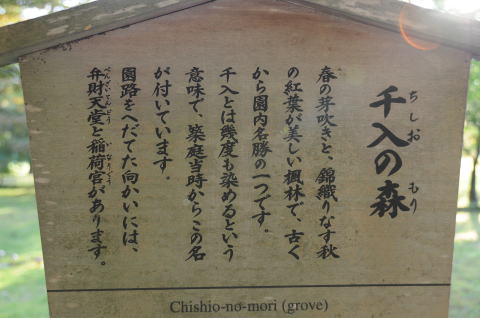 千入の森
ちしお もり
春の芽吹きと、錦織りなす秋
の紅葉が美しい楓林で、古く
から園内名勝の一つです。
千入とは幾度も染めるという
意味で、築庭当時からこの名
が付いています。
園路をへだてた向かいには、
弁財天堂と稲荷宮があります。
べんざいてんどう いなりぐう
Chishio-no-mori (grove)